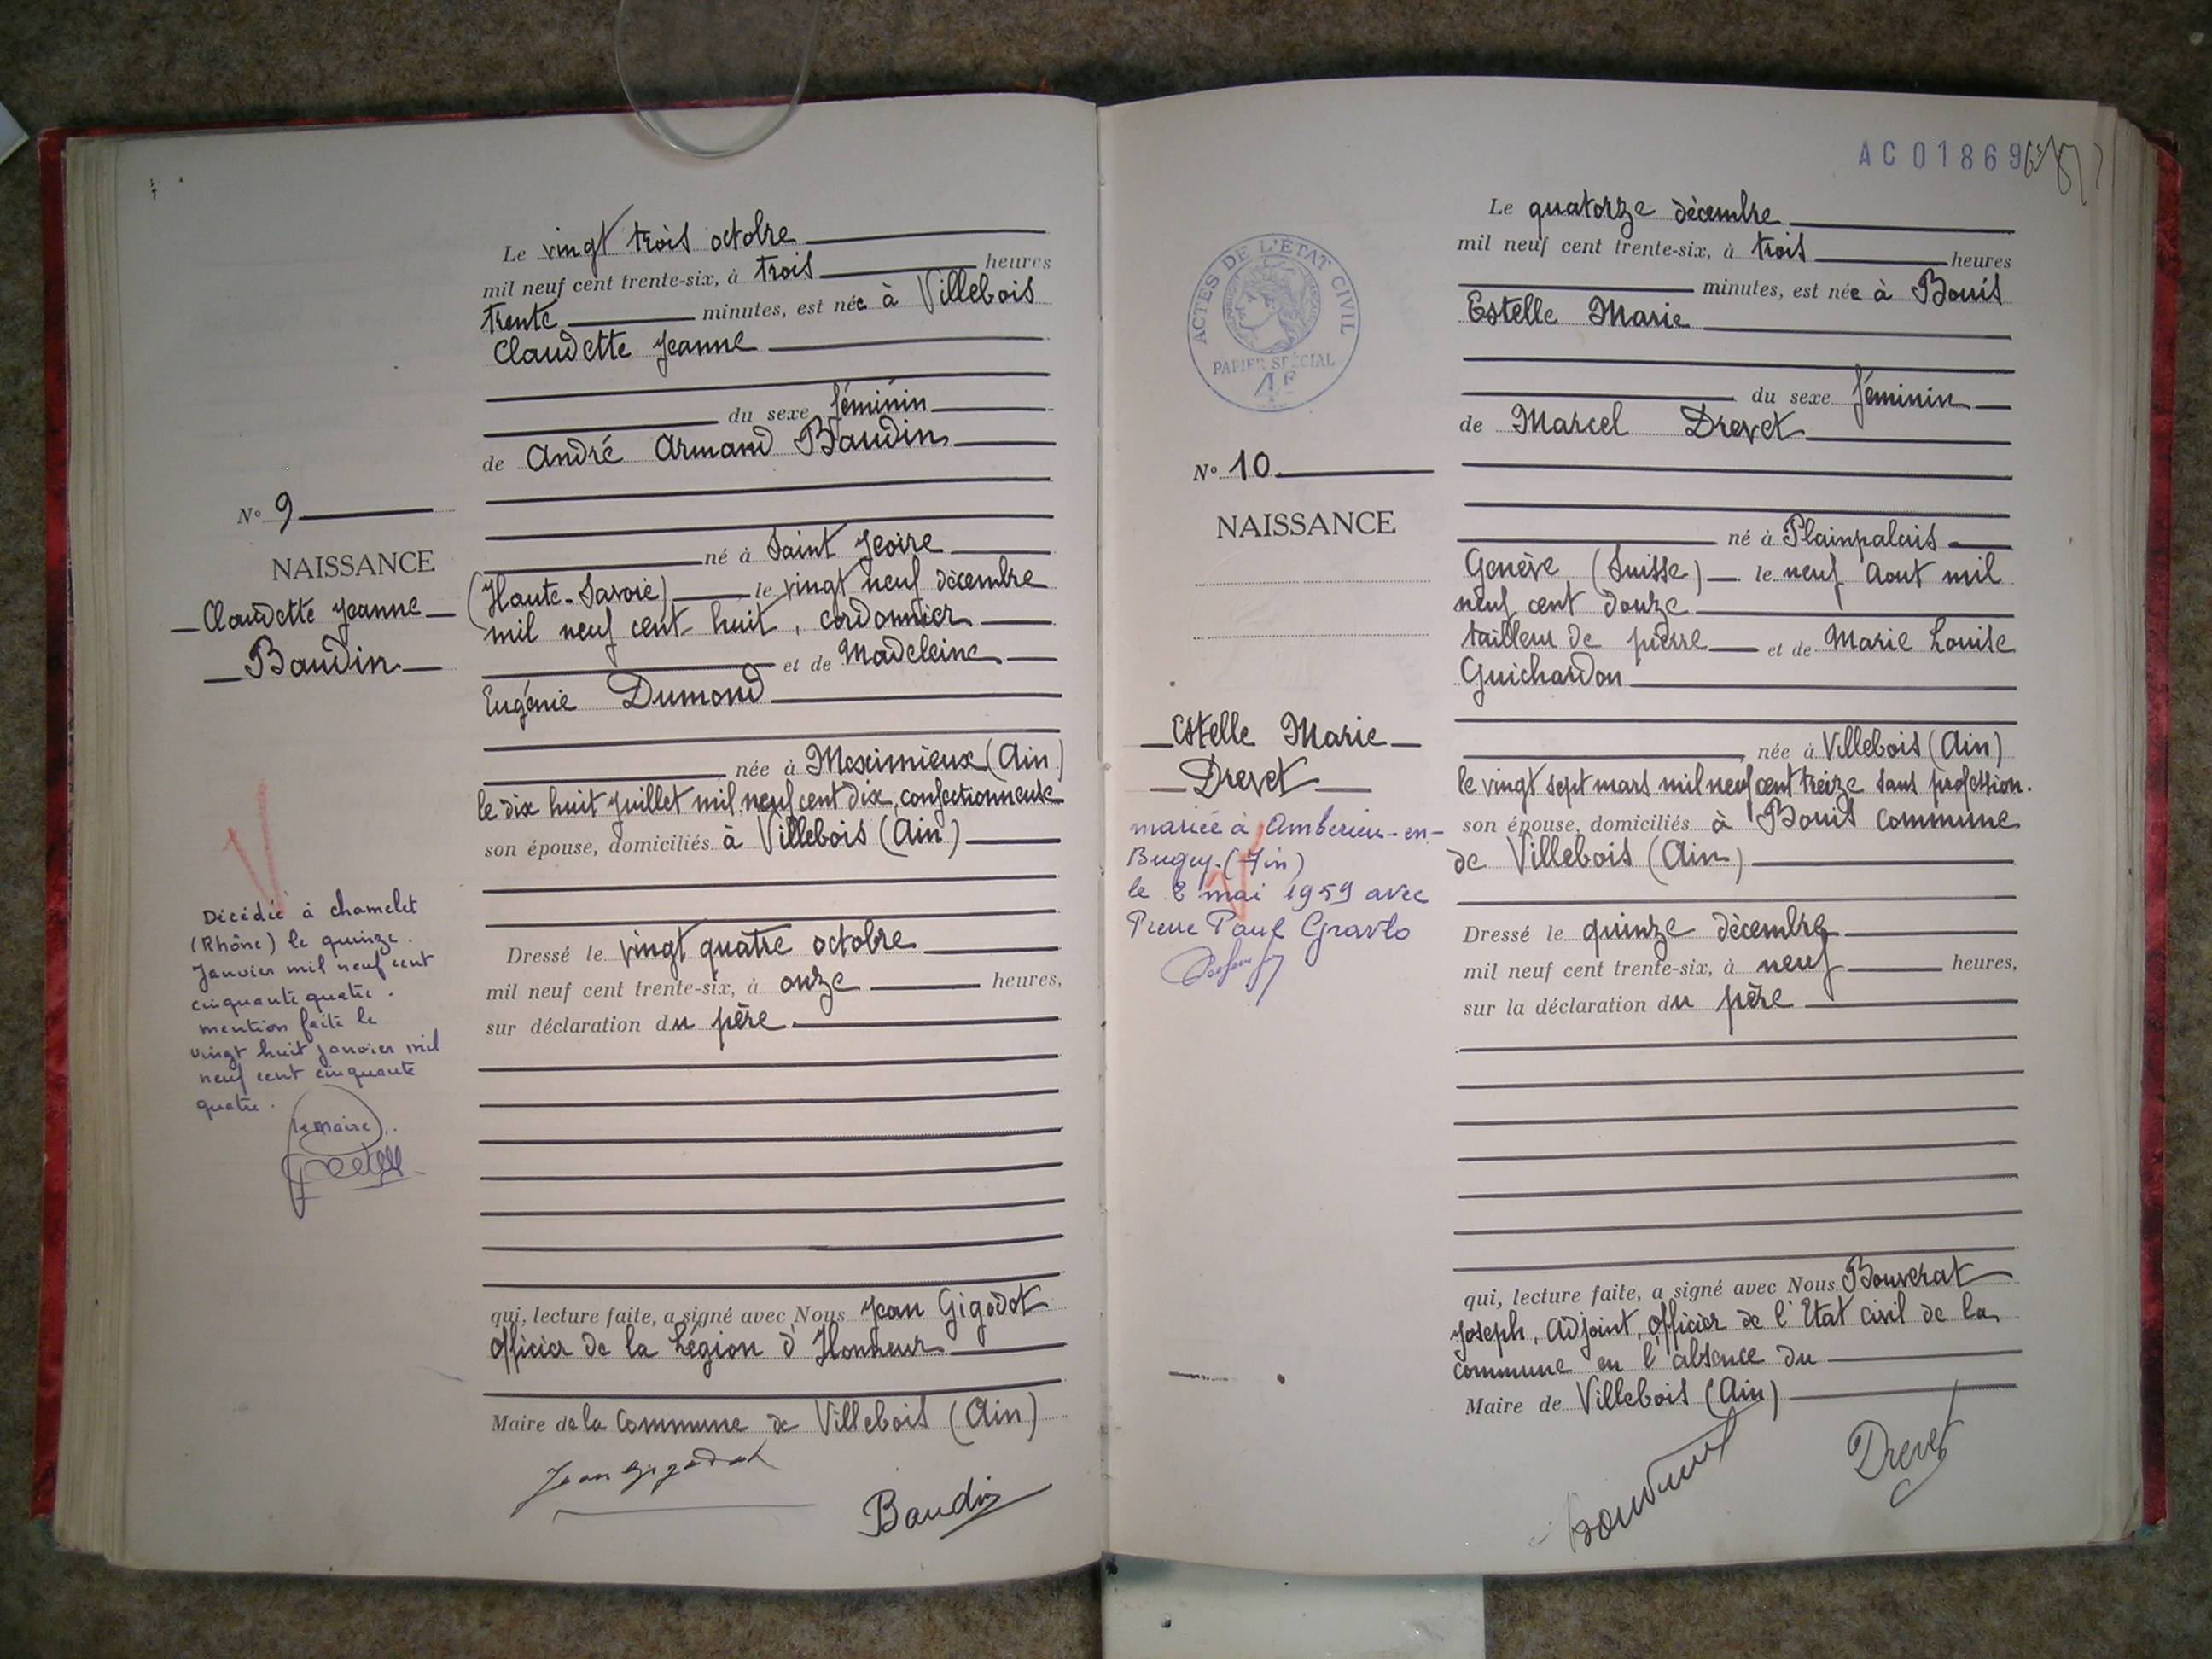 Le vingt trois octobre
mil neuf cent trente-six, à trois heures
trente minutes, est née à Villebois
Claudette Jeanne
du sexe féminin
de André Armand Baudin
N° 9
NAISSANCE
Claudette Jeanne
Baudin
né à Saint Jeoire
(Haute-Savoie) le vingt neuf décembre
mil neuf cent huit, cordonnier
et de Madeleine
Eugénie Dumond
née à Meximieux (Ain)
le dix huit juillet mil neuf cent dix, confectionneuse
son épouse, domiciliés à Villebois (Ain)
Décédée à chamelet
(Rhône) le quinze
Janvier mil neuf cent
cinquante quatre.
mention faite le
vingt huit janvier mil
neuf cent cinquante
quatre.
le maire
Dressé le vingt quatre octobre
mil neuf cent trente-six, à onze heures,
sur déclaration du père
qui, lecture faite, a signé avec Nous Jean Gigodot
officier de la Légion d'Honneur
Maire de la Commune de Villebois (Ain)
Jean Gigodot
Baudin
AC 01869
ACTES DE L'ÉTAT CIVIL
PAPIER SPÉCIAL
4F
Le quatorze décembre
mil neuf cent trente-six, à trois heures
minutes, est née à Bouis
Estelle Marie
du sexe féminin
de Marcel Drevet
N° 10
NAISSANCE
Estelle Marie
Drevet
mariée à Amberieu-en-
Bugey (Ain)
le 2 mai 1959 avec
Pierre Paul
né à Plainpalais
Genève (Suisse) le neuf Aout mil
neuf cent douze
tailleur de pierre et de Marie Louise
Guichardon
née à Villebois (Ain)
le vingt sept mars mil neuf cent treize sans profession.
son épouse, domiciliés à Bouis commune
de Villebois (Ain)
Dressé le quinze décembre
mil neuf cent trente-six, à neuf heures,
sur la déclaration du père
qui, lecture faite, a signé avec Nous Bouverat
Joseph, Adjoint, officier de l'Etat civil de la
commune en l'absence du
Maire de Villebois (Ain)
Drevet